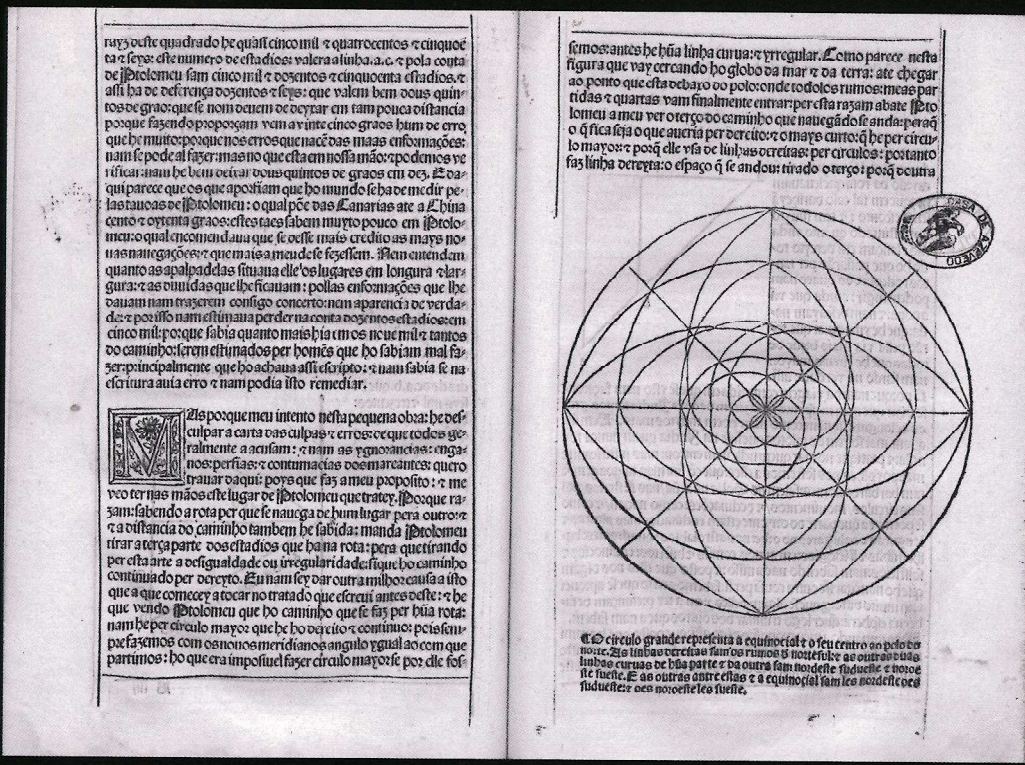 rayz deste quadrado he quasi cinco mil ⁊ quatrocentos ⁊ cinquoẽ
ta ⁊ seys: este numero de estadios: valera a linha .a.c. ⁊ pola conta
de Ptolomeu sam cinco mil ⁊ dozentos ⁊ cinquoenta estadios. ⁊
assi ha de deferença dozentos ⁊ seys: que valem bem dous quin-
tos de grao: que se nom deuem de deyxar em tam pouca distancia
porque fazendo proporçam vem a vinte cinco graos hum de erro,
que he muito: porque nos erros que nacẽ das maas enformações:
nam se pode al fazer: mas no que esta em nossa mão: ⁊ podemos ve
rificar: nam he bem deixar dous quintos de grao em dez. E da-
qui parece os que aporfiam que ho mundo se ha de medir pe-
las tauoas de Ptolomeu: o qual põe das Canarias ate a China
cento ⁊ oytenta graos: estes taes sabem muyto pouco em Ptolo-
meu: o qual encomendaua que se desse mais credito as mays no-
uas nauegações: ⁊ que mais a meude se fezessem. Nem entendem
quanto as apalpadelas situaua elle os lugares em longura ⁊ lar-
gura: ⁊ as duuidas que lhe ficauam: pollas enformações que lhe
dauam nam trazerem consigo concerto: nem aparencia de verda-
de: ⁊ por isso nam estimaua perder na conta dozentos estadios: em
cinco mil: porque sabia quanto mais hia em os noue mil ⁊ tantos
do caminho: serem estimados per homẽs que ho sabiam mal fa-
zer: principalmente que ho achaua assi escripto: ⁊ nam sabia se na
escritura auia erro ⁊ nam podia isto remediar.
MAs porque meu intento nesta pequena obra: he des-
culpar a carta das culpas ⁊ erros: de que todos ge-
ralmente a acusam: ⁊ nam as ygnorancias: enga-
nos: perfias: ⁊ contumacias dos mareantes: quero
trauar daqui: poys que faz a meu proposito: ⁊ me
veo ter nas mãos este lugar de Ptolomeu que tratey. Porque ra-
zam: sabendo a rota per que se nauega de hum lugar pera outro: ⁊
⁊ a distancia do caminho tambem he sabida: manda Ptolomeu
tirar a terça parte dos estadios que ha na rota: pera que tirando
per esta arte a desigualdade ou irregularidade: fique ho caminho
continuado per dereyto. Eu nam sey dar outra milhor causa a isto
que a que comecey a tocar no tratado que escreui antes deste: ⁊ he
que vendo Ptolomeu que ho caminho que se faz per hũa rota:
nam he per circulo mayor que he ho dereito ⁊ continuo: pois sem-
pre fazemos com os nouos meridianos angulo ygual ao com que
partimos: ho que era impossiuel fazer circulo mayor se por elle fos-
semos: antes he hũa linha curua: ⁊ yrregular. Como parece nesta
figura que vay cercando ho globo da mar ⁊ da terra: ate chegar
ao ponto que esta debaxo do polo: onde todolos rumos: meas par
tidas ⁊ quartas vam finalmente entrar: per esta razam abate Pto
lomeu a meu ver o terço do caminho que nauegãdo se anda: peraq̃
o q̃ fica seja o que aueria per dereito: ⁊ o mays curto: q̃ he per circu-
lo mayor: ⁊ porq̃ elle vsa de linhas dereitas: per circulos: portanto
faz linha dereyta: o espaço q̃ se andou: tirado o terço: porq̃ doutra
CASA DE AZEVEDO
¶ O circulo grande representa a equinocial ⁊ o seu centro ao polo do
norte. As linhas dereitas sam os rumos d̃ norte sul: ⁊ as outras duas
linhas curuas de hũa parte ⁊ da outra sam nordeste suduestе ⁊ noroe
ste sueste. E as outras antre estas ⁊ a equinocial sam les nordeste oes
sudueste: ⁊ oes noroeste les sueste.